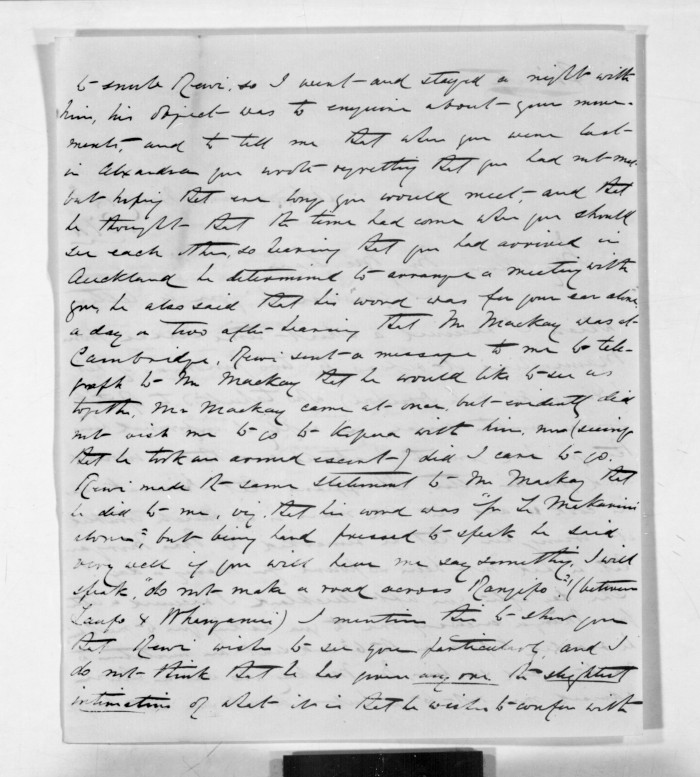 to smite Rewi, so I went and stayed a night with
him, his object was to enquire about your move-
ments, and to tell me that when you were last
in Alexandra you wrote regretting that you had not met
but hoping that ere long you would meet, and that
he thought that the time had come when you should
see each other, so hearing that you had arrived in
Auckland he determined to arrange a meeting with
you, he also said that his word was for your ear alone
a day or two after hearing that Mr Mackay was at
Cambridge, Rewi sent a message to me to tele-
graph to Mr Mackay that he would like to see us
together. Mr Mackay came at once, but evidently did
not wish me to go to Kopua with him, nor (seeing
that he took an armed escort) did I care to go.
Rewi made the same statement to Mr Mackay that
he did to me, viz. that his word was "for Te Makarini
alone", but being hard pressed to speak he said
very well if you will have me say something, I will
speak, "do not make a road across Rangipo", (between
Taupo & Whanganui) I mention this to show you
that Rewi wishes to see you particularly, and I
do not think that he has given any one the slightest
intimation of what it is that he wishes to confer with